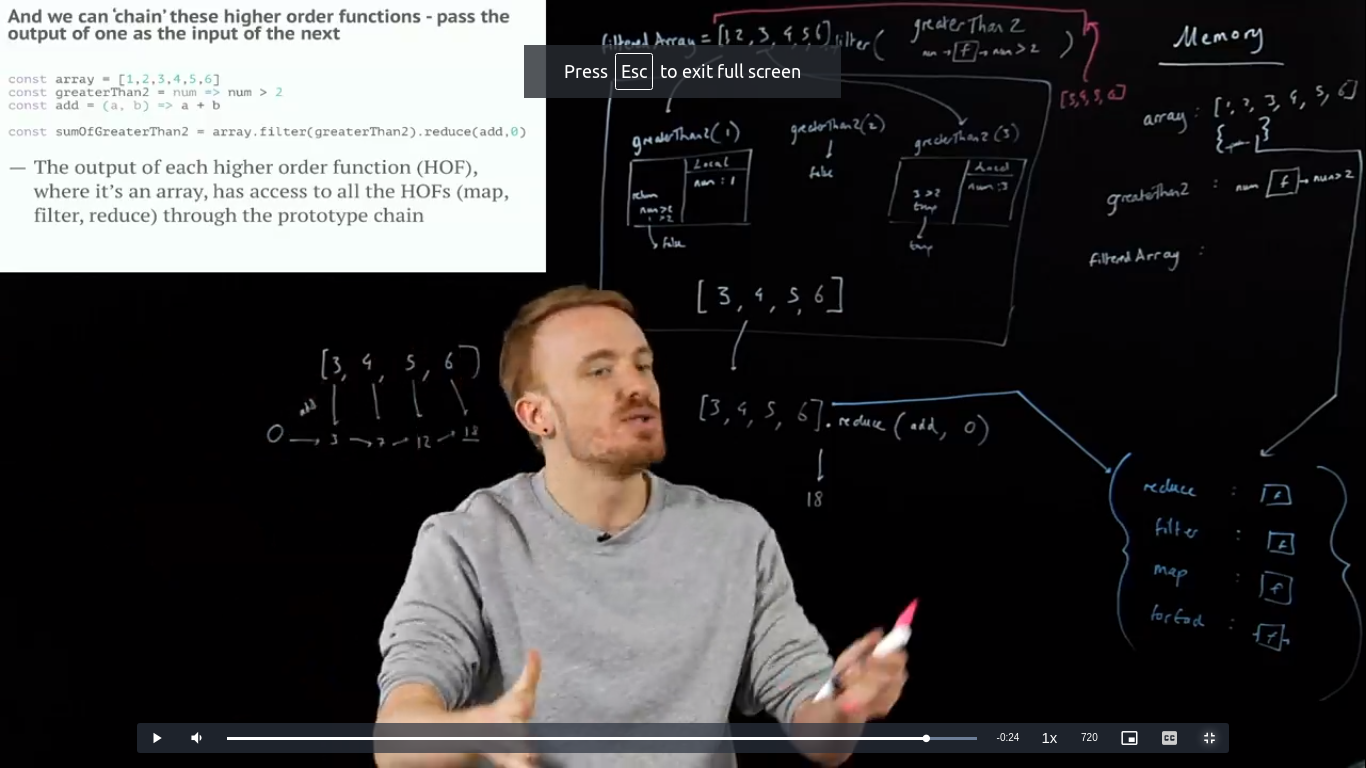 And we can ‘chain’ these higher order functions - pass the
output of one as the input of the next
const array = [1,2,3,4,5,6]
const greaterThan2 = num => num > 2
const add = (a, b) => a + b
const sumOfGreaterThan2 = array.filter(greaterThan2).reduce(add,0)
— The output of each higher order function (HOF),
where it’s an array, has access to all the HOFs (map,
filter, reduce) through the prototype chain
Press Esc to exit full screen
filtered Array = [1 2, 3, 4, 5, 6].filter( greaterThan 2 )
num → f → num > 2
[3,4,5,6]
greaterThan2(1)
Local
num : 1
return
num > 2
1 > 2
false
greaterThan2(2)
false
greaterThan2 (3)
Local
num : 3
3 > 2
true
true
[3, 4, 5, 6]
[3, 4, 5, 6].reduce (add, 0)
18
[3, 4, 5, 6]
add
0 → 3 → 7 → 12 → 18
Memory
array : [1, 2, 3, 4, 5, 6]
greaterThan2 : num f → num>2
filtered Array :
reduce : f
filter : f
map : f
forEach : f
-0:24
1x
720
CC